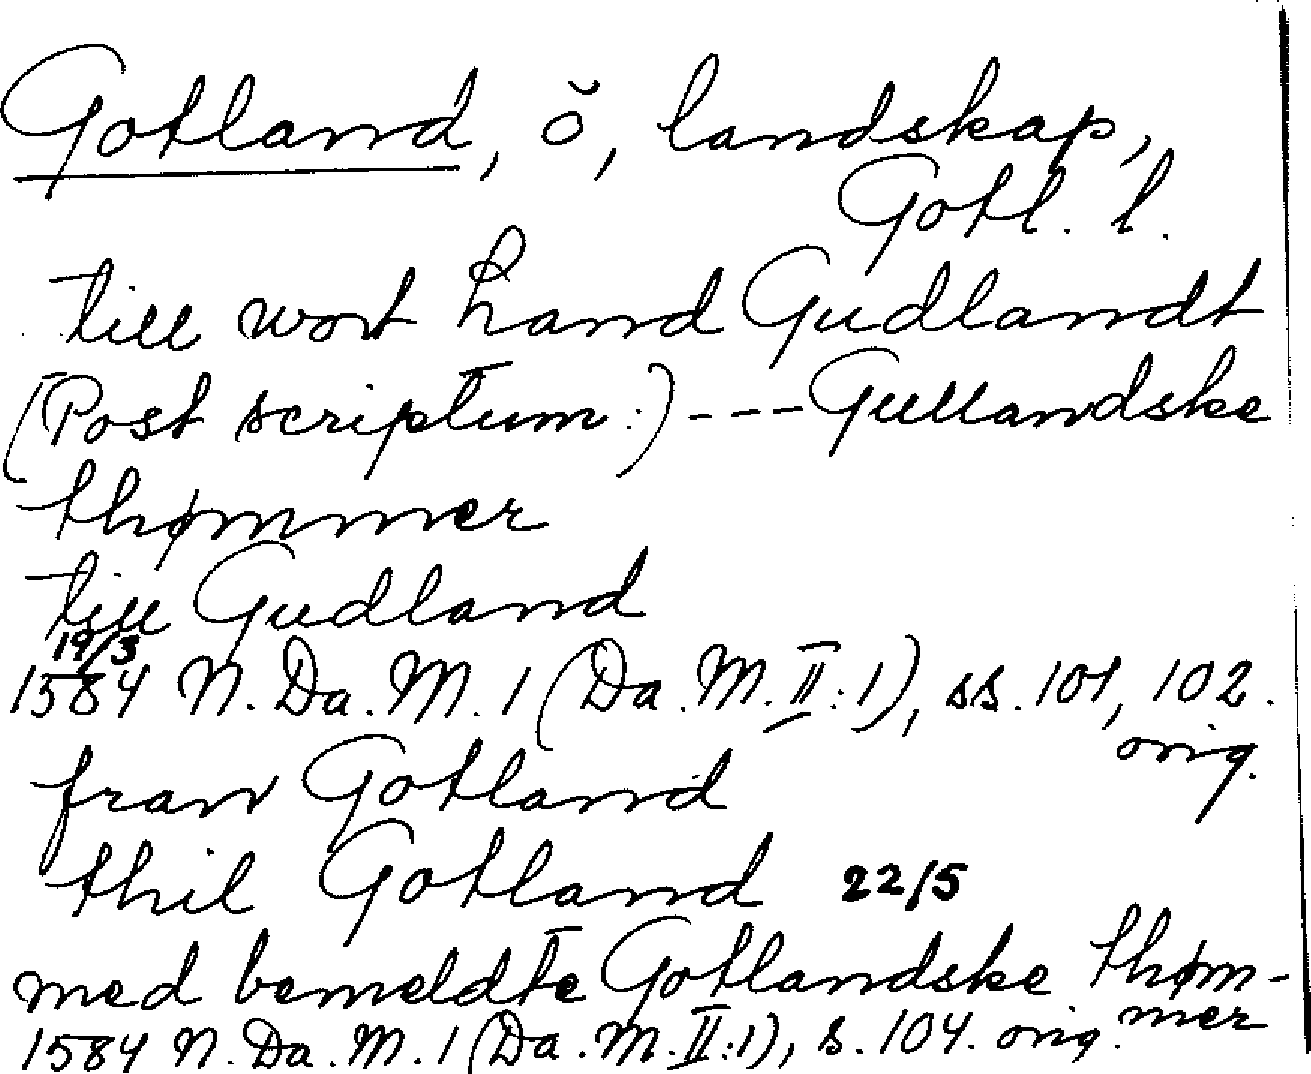 Gotland, ö, landskap,
Gotl. l.
till wort Land Gudlandt
(Post scriptum:) --- Gullandske
thømmer
till Gudland
19/3
1584 N. Da. M. 1 (Da. M. II:1), ss. 101, 102.
orig.
fran Gotland
thil Gotland 22/5
med bemeldte Gotlandske thøm-
mer
1584 N. Da. M. 1 (Da. M. II:1), s. 104. orig.